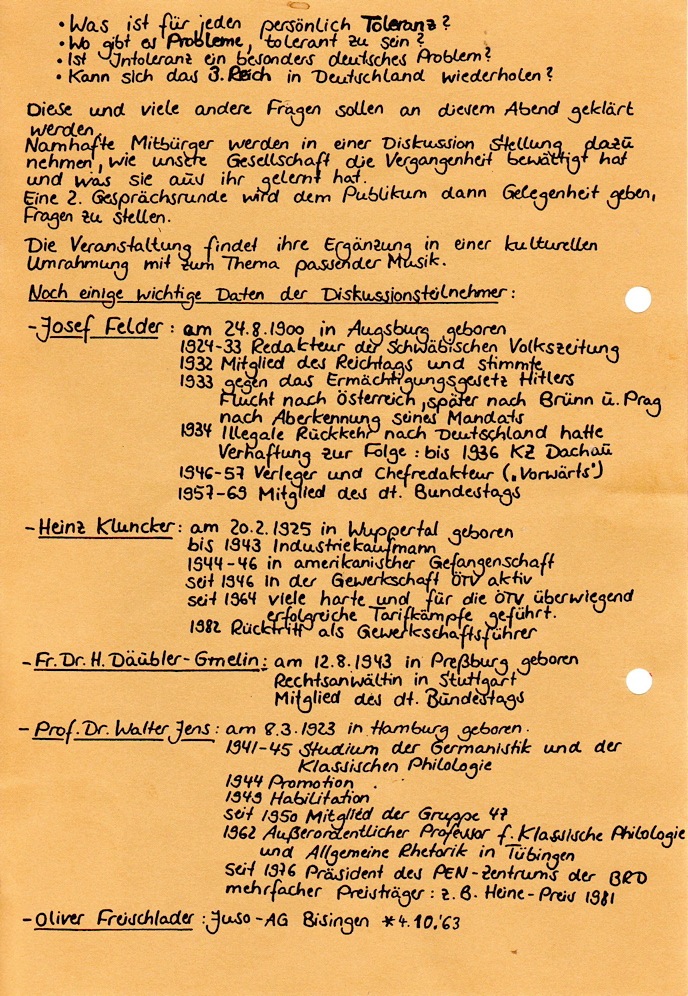 • Was ist für jeden persönlich Toleranz?
• Wo gibt es Probleme, tolerant zu sein?
• Ist Intoleranz ein besonders deutsches Problem?
• Kann sich das 3. Reich in Deutschland wiederholen?
Diese und viele andere Fragen sollen an diesem Abend geklärt
werden.
Namhafte Mitbürger werden in einer Diskussion Stellung dazu
nehmen, wie unsere Gesellschaft die Vergangenheit bewältigt hat
und was sie aus ihr gelernt hat.
Eine 2. Gesprächsrunde wird dem Publikum dann Gelegenheit geben,
Fragen zu stellen.
Die Veranstaltung findet ihre Ergänzung in einer kulturellen
Umrahmung mit zum Thema passender Musik.
Noch einige wichtige Daten der Diskussionsteilnehmer:
- Josef Felder: am 24.8.1900 in Augsburg geboren
1924-33 Redakteur der Schwäbischen Volkszeitung
1932 Mitglied des Reichtags und stimmte
1933 gegen das Ermächtigungsgesetz Hitlers
Flucht nach Österreich, später nach Brünn u. Prag
nach Aberkennung seines Mandats
1934 Illegale Rückkehr nach Deutschland hatte
Verhaftung zur Folge: bis 1936 KZ Dachau
1946-57 Verleger und Chefredakteur („Vorwärts")
1957-69 Mitglied des dt. Bundestags
- Heinz Kluncker: am 20.2.1925 in Wuppertal geboren
bis 1943 Industriekaufmann
1944-46 in amerikanischer Gefangenschaft
seit 1946 in der Gewerkschaft ÖTV aktiv
seit 1964 viele harte und für die ÖTV überwiegend
erfolgreiche Tarifkämpfe geführt.
1982 Rücktritt als Gewerkschaftsführer
- Fr. Dr. H. Däubler-Gmelin: am 12.8.1943 in Preßburg geboren
Rechtsanwältin in Stuttgart
Mitglied des dt. Bundestags
- Prof. Dr. Walter Jens: am 8.3.1923 in Hamburg geboren.
1941-45 Studium der Germanistik und der
Klassischen Philologie
1944 Promotion
1949 Habilitation
seit 1950 Mitglied der Gruppe 47
1962 Außerordentlicher Professor f. Klassische Philologie
und Allgemeine Rhetorik in Tübingen
seit 1976 Präsident des PEN-Zentrums der BRD
mehrfacher Preisträger: z.B. Heine-Preis 1981
- Oliver Freischlader: Juso-AG Bisingen *4.10.'63